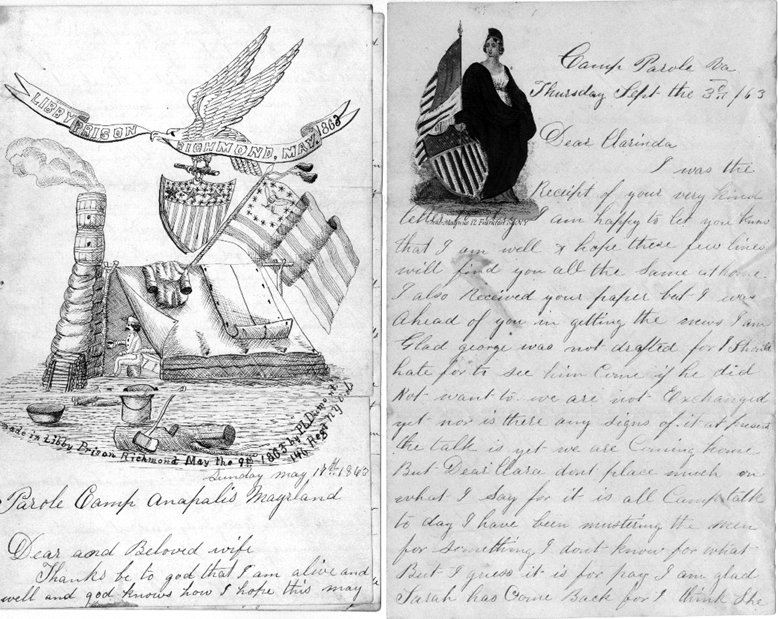 LIBBY PRISON
RICHMOND, MAY, 1863
made in Libby Prison Richmond May the 9th 1863 by
146 Regt N.Y.
Sunday may 17th 1863
Parole Camp Anapalis Mayrland
Dear and Beloved wife
Thanks be to god that I am alive and
well and god knows how I hope this may
Camp Parole Va
Thursday Sept the 3rd /63
Dear Clarinda
I was the
Receipt of your very kind
letter I am happy to let you know
Magnus 12 Frankfort St N.Y
that I am well & hope these few lines
will find you all the same at home.
I also Received your paper but I was
Ahead of you in getting the news I am
Glad george was not drafted for I Should
hate for to see him Come if he did
Not want to we are not Exchanged
yet nor is there any signs of it at present
the talk is yet we are Coming home
But Dear Clara dont place much on
what I Say for it is all Camp talk
to day I have been mustering the men
for Something I dont know for what
But I guess it is for pay I am glad
Sarah has Come Back for I think She